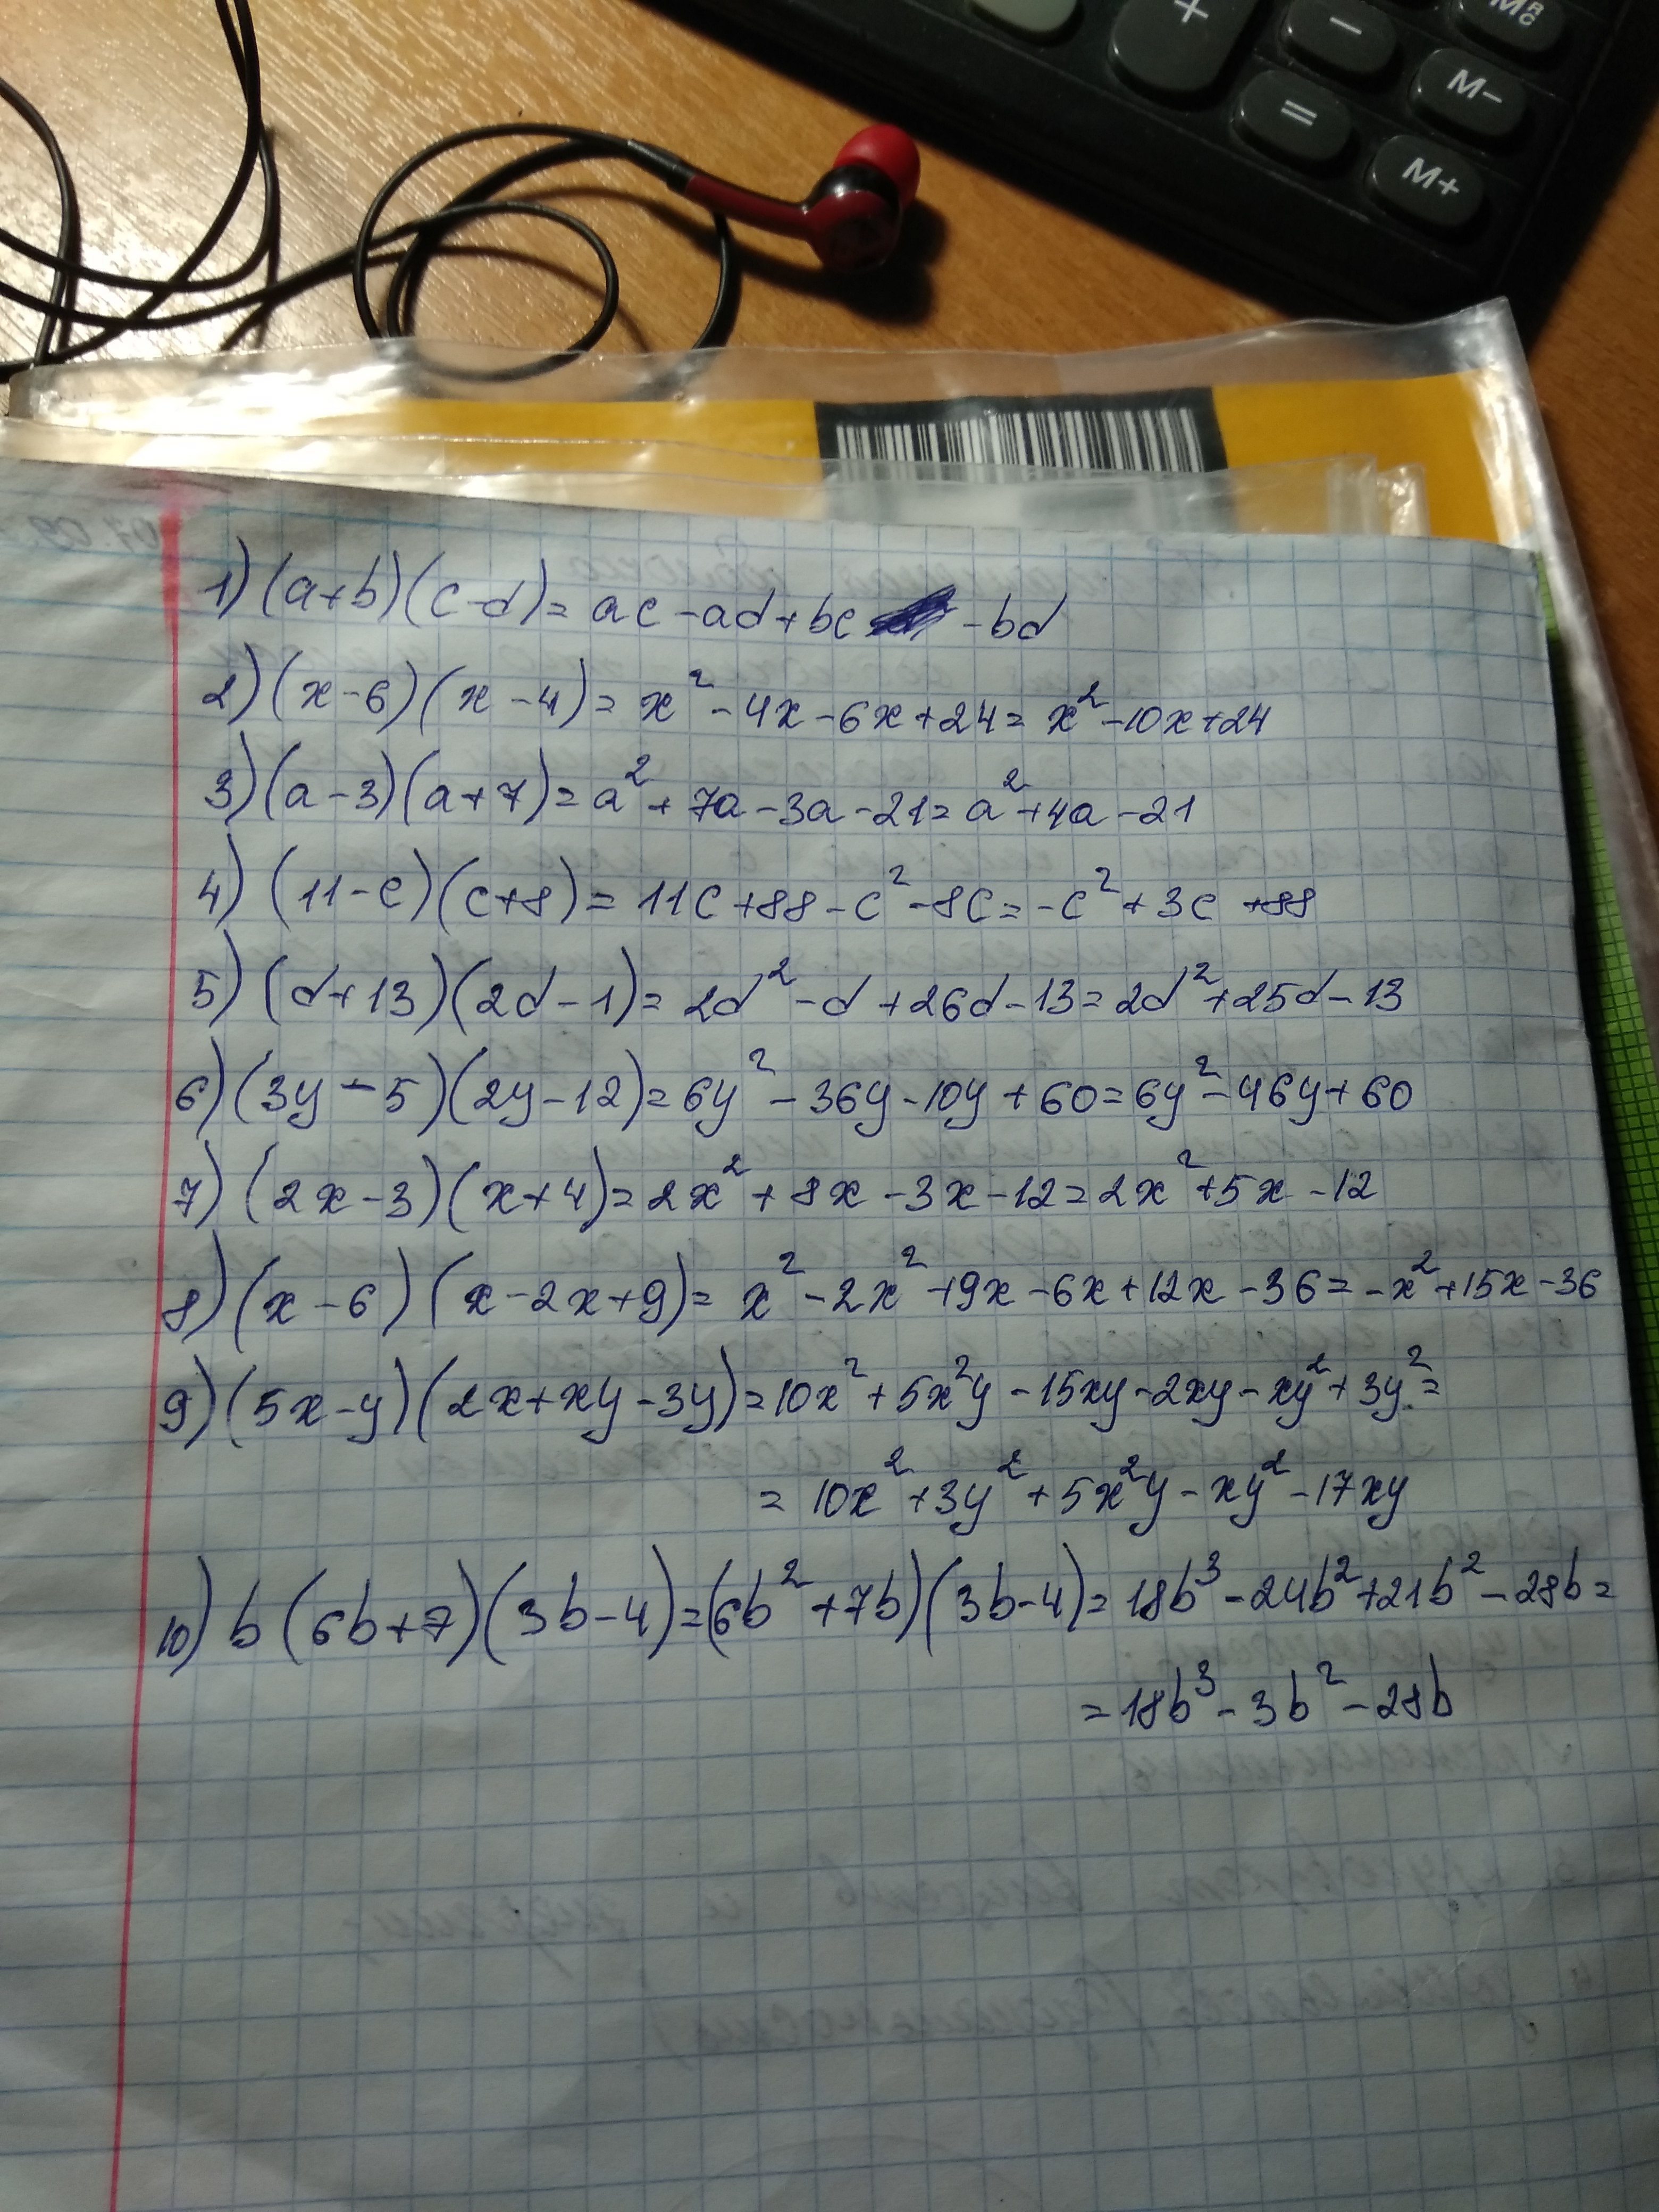 +
−
M R C
=
M−
M+
1) (a+b)(c-d)= ac -ad+bc -bd
2) (x-6)(x-4)= x² -4x-6x+24= x²-10x+24
3) (a-3)(a+7)= a²+7a-3a-21= a²+4a-21
4) (11-c)(c+8)= 11c+88-c²-8c= -c²+3c +88
5) (d+13)(2d-1)= 2d²-d+26d-13= 2d²+25d-13
6) (3y-5)(2y-12)= 6y²-36y-10y+60= 6y²-46y+60
7) (2x-3)(x+4)= 2x²+8x-3x-12= 2x²+5x-12
8) (x-6)(x-2x+9)= x²-2x²+9x-6x+12x-36= -x²+15x-36
9) (5x-y)(2x+xy-3y)= 10x²+5x²y-15xy-2xy-xy²+3y²=
= 10x²+3y²+5x²y-xy²-17xy
10) b(6b+7)(3b-4)=(6b²+7b)(3b-4)= 18b³-24b²+21b²-28b=
= 18b³-3b²-28b